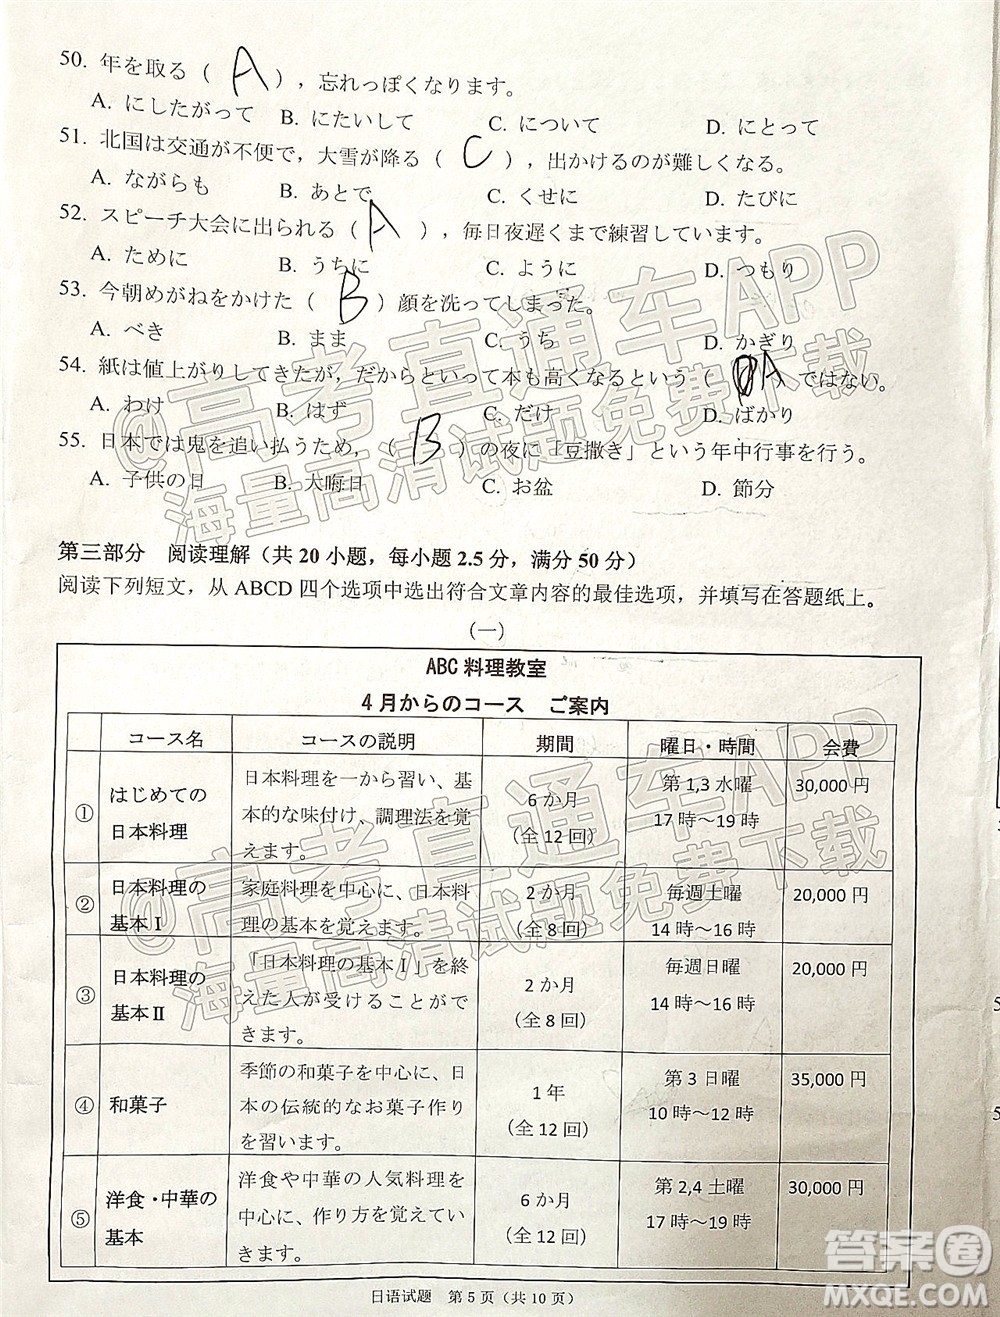 50. 年を取る（ A ），忘れっぽくなります。
A. にしたがって B. にたいして C. について D. にとって
51. 北国は交通が不便で，大雪が降る（ C ），出かけるのが難しくなる。
A. ながらも B. あとで C. くせに D. たびに
52. スピーチ大会に出られる（ A ），毎日夜遅くまで練習しています。
A. ために B. うちに C. ように D. つもり
53. 今朝めがねをかけた（ B ）顔を洗ってしまった。
A. べき B. まま C. うち D. かぎり
54. 紙は値上がりしてきたが，だからといって本も高くなるという（ A ）ではない。
A. わけ B. はず C. だけ D. ばかり
55. 日本では鬼を追い払うため，（ B ）の夜に「豆撒き」という年中行事を行う。
A. 子供の日 B. 大晦日 C. お盆 D. 節分
@高考直通车APP
海量高清试题免费下载
第三部分 阅读理解（共 20 小题，每小题 2.5 分，满分 50 分）
阅读下列短文，从 ABCD 四个选项中选出符合文章内容的最佳选项，并填写在答题纸上。
（一）
ABC 料理教室
4 月からのコース ご案内
コース名 コースの説明 期間 曜日・時間 会費
① はじめての日本料理 日本料理を一から習い、基本的な味付け、調理法を覚えます。 6 か月（全 12 回） 第 1,3 水曜 17 時～19 時 30,000 円
② 日本料理の基本Ⅰ 家庭料理を中心に、日本料理の基本を覚えます。 2 か月（全 8 回） 毎週土曜 14 時～16 時 20,000 円
③ 日本料理の基本Ⅱ 「日本料理の基本Ⅰ」を終えた人が受けることができます。 2 か月（全 8 回） 毎週日曜 14 時～16 時 20,000 円
④ 和菓子 季節の和菓子を中心に、日本の伝統的なお菓子作りを習います。 1 年（全 12 回） 第 3 日曜 10 時～12 時 35,000 円
⑤ 洋食・中華の基本 洋食や中華の人気料理を中心に、作り方を覚えていきます。 6 か月（全 12 回） 第 2,4 土曜 17 時～19 時 30,000 円
@高考直通车APP
海量高清试题免费下载
日语试题 第 5 页（共 10 页）
答案圈
MXQE.COM